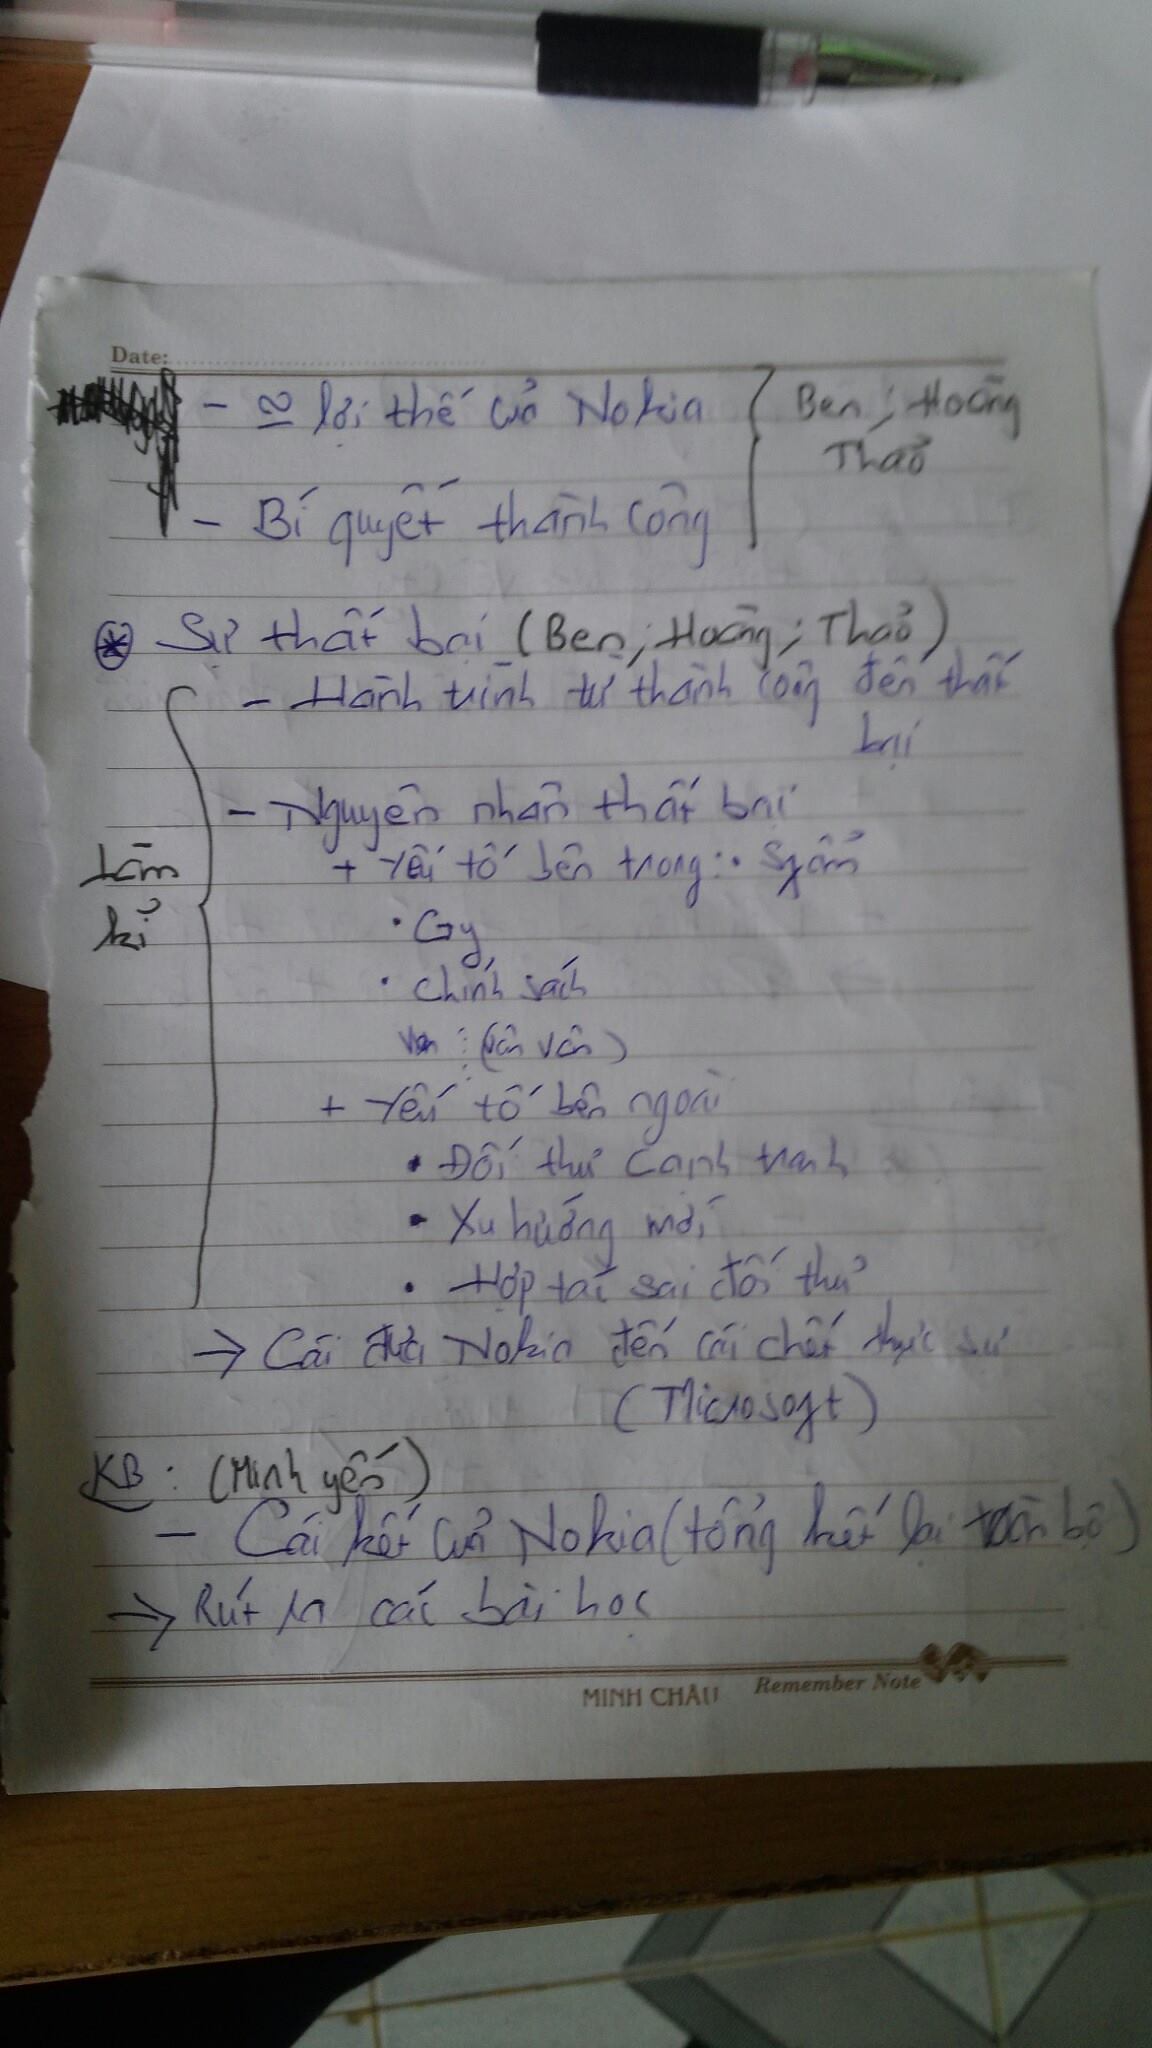 Date:
- ≃ lợi thế của Nokia
Ben; Hoàng
Thảo
- Bí quyết thành công
* Sự thất bại (Ben; Hoàng; Thảo)
- Hành trình từ thành công đến thất
bại
- Nguyên nhân thất bại
Làm
kỉ
+ Yếu tố bên trong: • Sphẩm
• Gy
• chính sách
(vân vân)
+ Yếu tố bên ngoài
• Đối thủ cạnh tranh
• Xu hướng mới
• Hợp tác sai đối thủ
→ Cái đưa Nokia đến cái chết thực sự
(Microsoft)
KB: (Minh yến)
- Cái kết của Nokia (tổng kết lại toàn bộ)
→ Rút ra các bài học
MINH CHÂU Remember Note